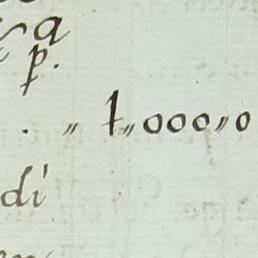 a
p.
. „ 1„000„0
di